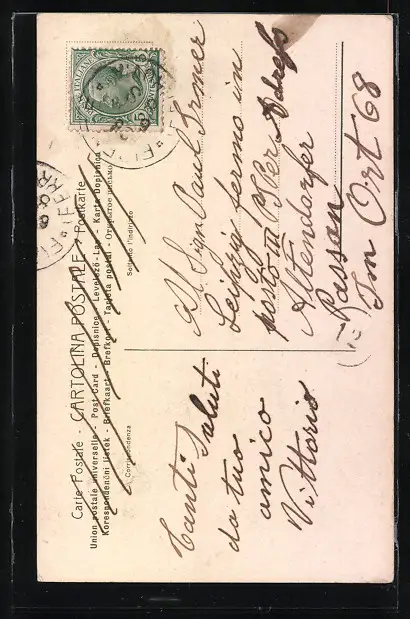 Carte Postale - CARTOLINA POSTALE - Postkarte
Union postale universelle - Post Card - Dopisnice - Levelező-Lap - Karta Dopisnica
Korespondenční lístek - Briefkaart - Brefkort - Tarjeta postal - Открытое письмо
Corrispondenza
Soltanto l'indirizzo
POSTE ITALIANE
Tanti Saluti
da tuo
amico
Vittorio
Al Sign Paul Irmer
Leipzig fermo in
posto in Per Adress
Altendorfer
Passau
Im Ort 68